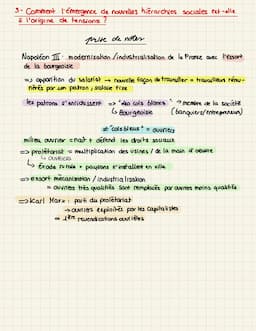 3- Comment l'émergence de nouvelles hiérarchies sociales est-elle
à l'origine de tensions ?
prise de notes
Napoléon III : modernisation / industrialisation de la France avec l'essort
de la bourgeoisie
=> apparition du salariat → nouvelle façon de travailler = travailleurs rému-
nérés par un patron / salaire fixe
les patrons s'enrichissent => "des cols blancs" → membre de la société
↳ Bourgeoisie (banquiers/entrepreneurs)
≠ "cols bleus" = ouvriers
milieu ouvrier = naît + défend les droits sociaux
=> prolétariat = multiplication des usines / de la main d'œuvre
↳ ouvriers
↳ Exode rurale = paysans s'installent en ville
=> essort mécanisation / industrialisation
= ouvriers très qualifiés sont remplacés par ouvriers moins qualifiés
=> Karl Marx : parti du prolétariat
→ ouvriers exploités par les capitalistes
→ 1ères revendications ouvrières